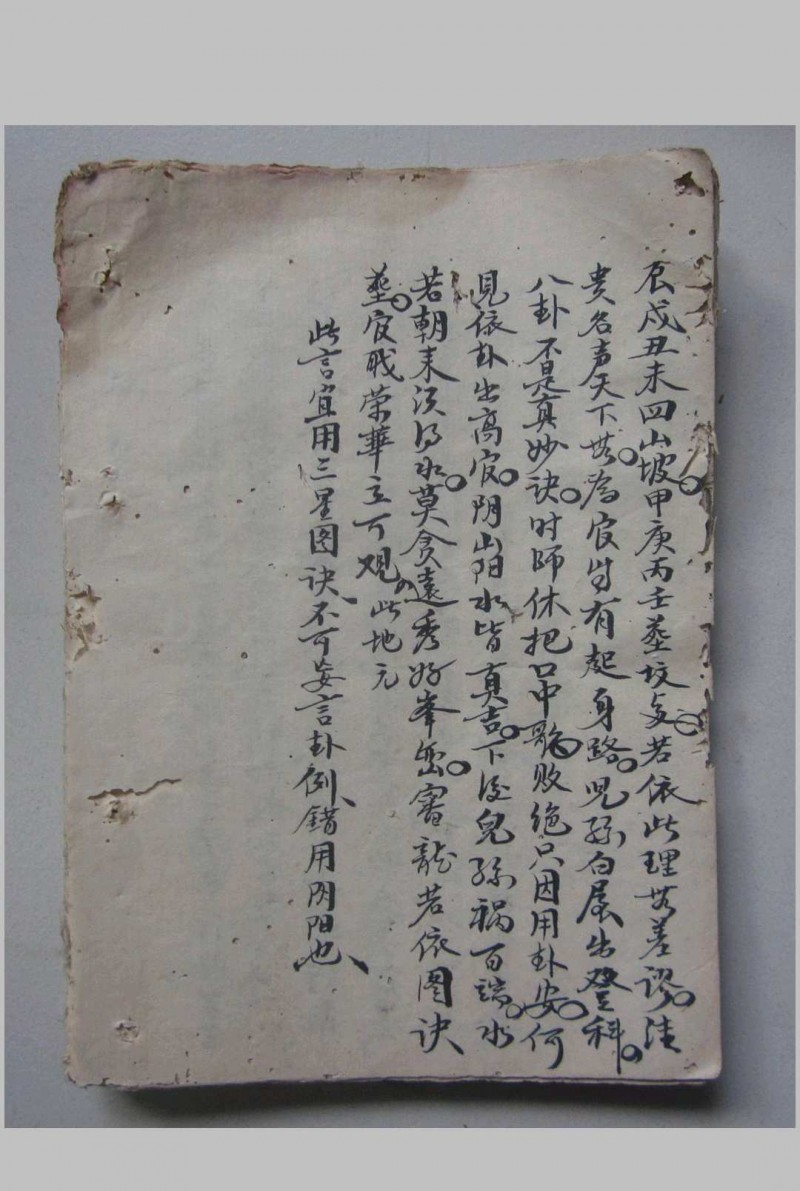 辰戌丑未四山坡。甲庚丙壬塟坟多。若依此理无差谬。清
贵名声天下无。为官自有起身路。児孙白屋出登科。
八卦不是真妙诀。时师休把口中歌。败绝只因用卦安。何
見依卦出高官。阴山阳水皆真吉。下后兒孙祸百端。水
若朝来须得水。莫贪遠秀好峯峦。審龍若依图诀
塟。官职荣華立可观。此地元
此言宜用三星图诀、不可妄言卦例、錯用阴阳也、